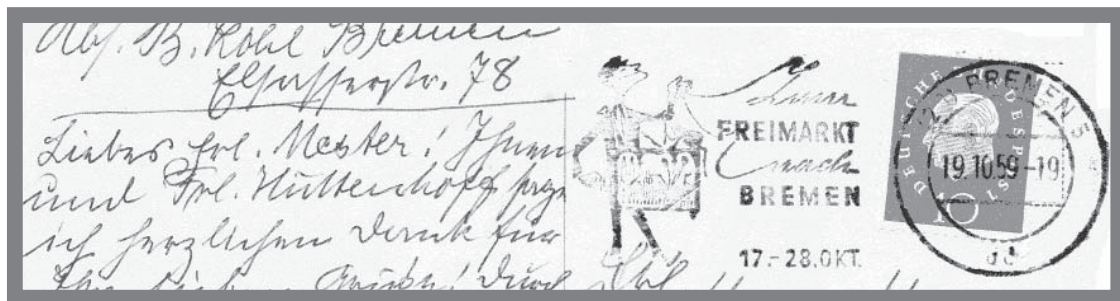 Abs. B. Kohl Bremen
Elsasserstr. 78
Liebes Frl. Mester! Ihnen
und Frl. Hüttenhoff sage
ich herzlichen Dank für
Ihre lieben Grüße! Durch
zum
FREIMARKT
nach
BREMEN
17.-28.OKT.
DEUTSCHE BUNDESPOST
10
BREMEN 5
19.10.59-19